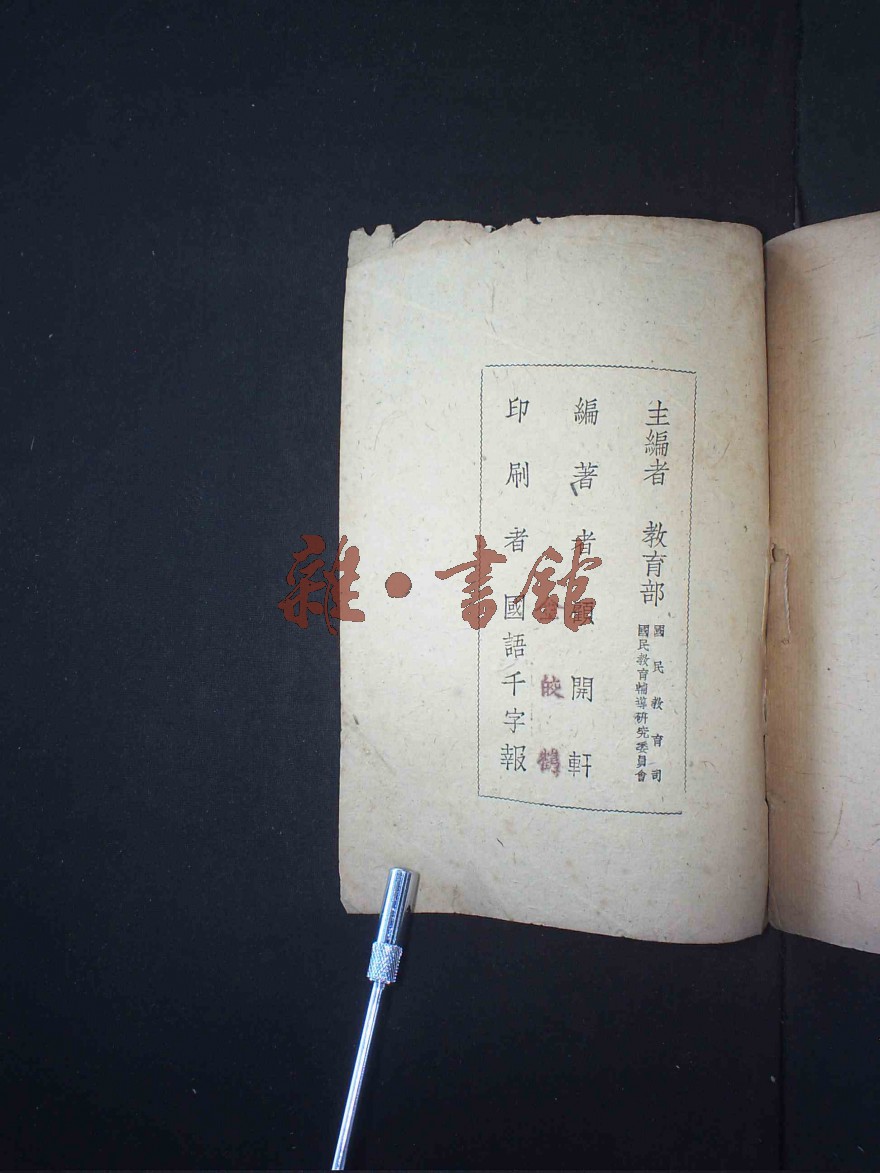 主編者 教育部 國民教育司
國民教育輔導研究委員會
編著者 顧開軒
皎鶴
印刷者 國語千字報
雜·書館